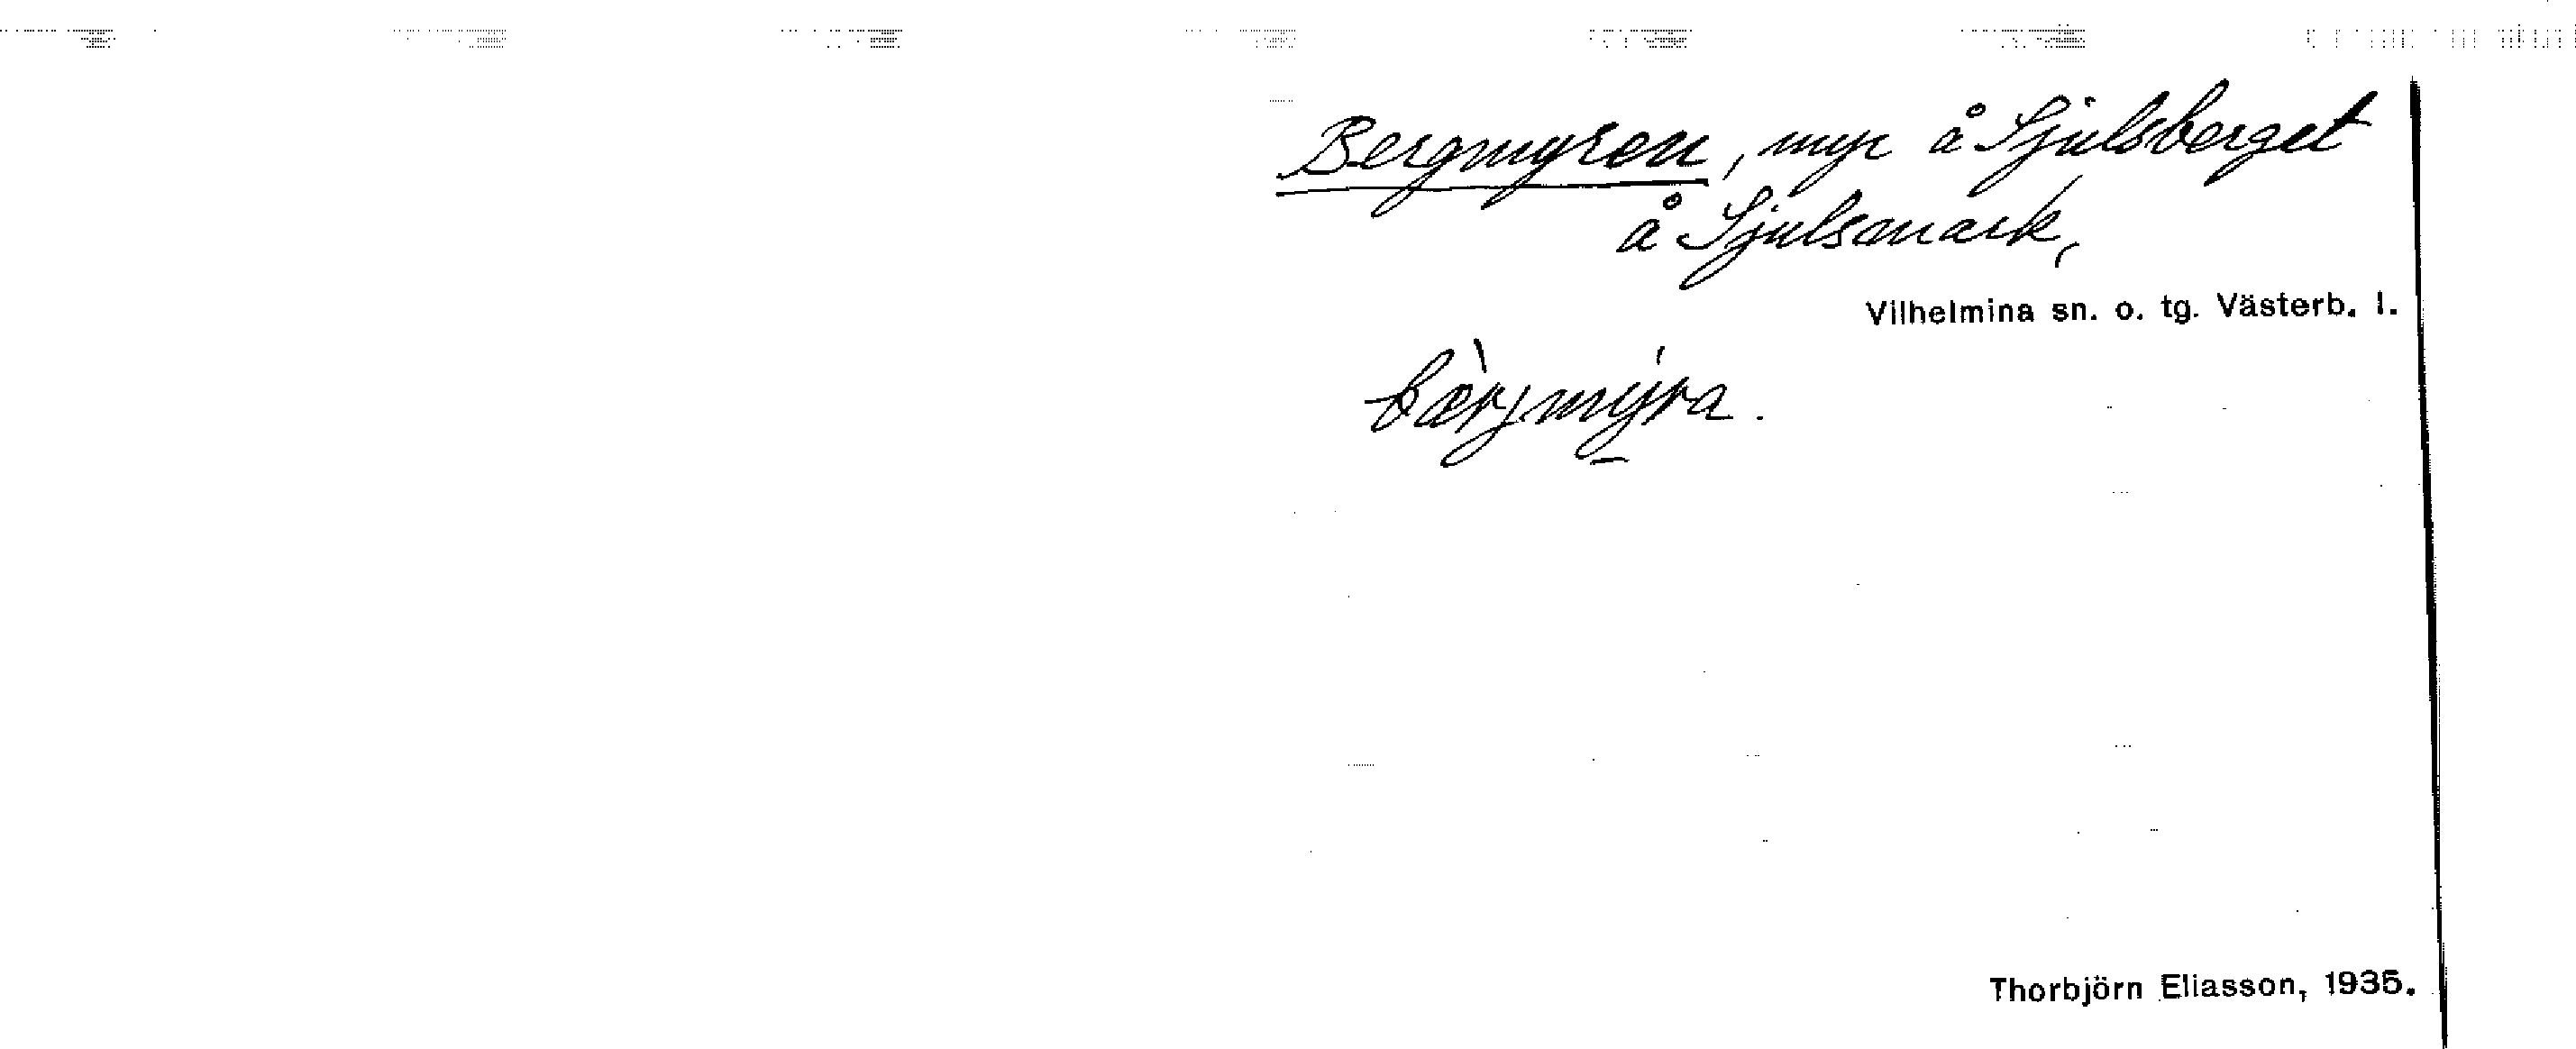 Bergmyren, myr å Sjulsberget
å Sjulsmark,
Vilhelmina sn. o. tg. Västerb. l.
bærjmýra.
Thorbjörn Eliasson, 1935.